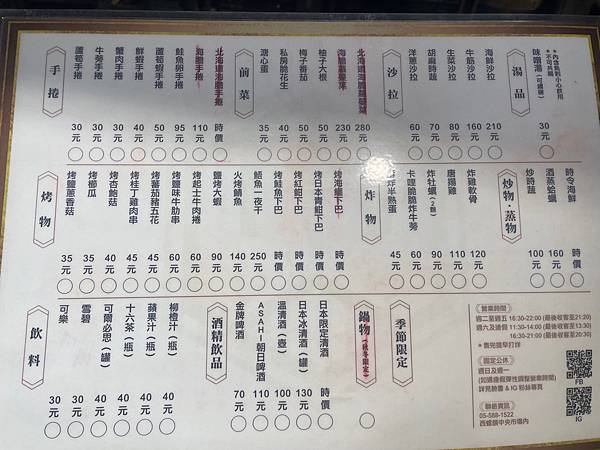 湯品
味噌湯(可續碗)
*內含魚刺小心飲用
*不可共喝
30元
沙拉
海鮮沙拉 210元
牛筋沙拉 80元
生菜沙拉 70元
胡麻時蔬 80元
洋蔥沙拉 60元
前菜
280元
230元
柚子大根 50元
梅子番茄 50元
私房脆花生 40元
溏心蛋 35元
手捲
時價
海膽手捲 110元
鮭魚卵手捲 95元
蘆筍蝦手捲 50元
鮮蝦手捲 40元
蟹肉手捲 30元
牛蒡手捲 30元
蘆筍手捲 30元
炒物・蒸物
時令海鮮 時價
酒蒸蛤蠣 160元
炒時蔬 100元
炸物
炸雞軟骨 120元
唐揚雞 110元
炸牡蠣(2顆) 90元
卡哩脆脆炸牛蒡 60元
酥炸半熟蛋 45元
烤物
烤海鱺下巴 時價
烤日本青魽下巴 時價
烤紅魽下巴 時價
烤鮭魚下巴 時價
鯖魚一夜干 250元
火烤鯖魚 140元
鹽烤大蝦 90元
烤起士牛肉捲 60元
烤鹽味牛肋串 60元
烤蕃茄豬五花 45元
烤桂丁雞肉串 45元
烤杏鮑菇 40元
烤櫛瓜 35元
烤鹽蔥香菇 35元
季節限定
鍋物(秋冬限定)
酒精飲品
日本限定清酒 時價
日本冰清酒(罐) 130元
溫清酒(壺) 100元
ASAHI朝日啤酒 110元
金牌啤酒 70元
飲料
柳橙汁(瓶) 40元
蘋果汁(瓶) 40元
十六茶(瓶) 40元
可爾必思(罐) 40元
雪碧 30元
可樂 30元
營業時間
週二至週五 16:30-22:00 (最後收客至21:20)
週六及週日 11:30-14:00 (最後收客至13:30)
16:30-21:00 (最後收客至20:30)
*售完提早打烊
固定公休
週日及週一
(如遇連假彈性調整營業時間)
詳見臉書 & IG 粉絲專頁
聯絡資訊
05-588-1522
西螺鎮中央市場內
FB
IG